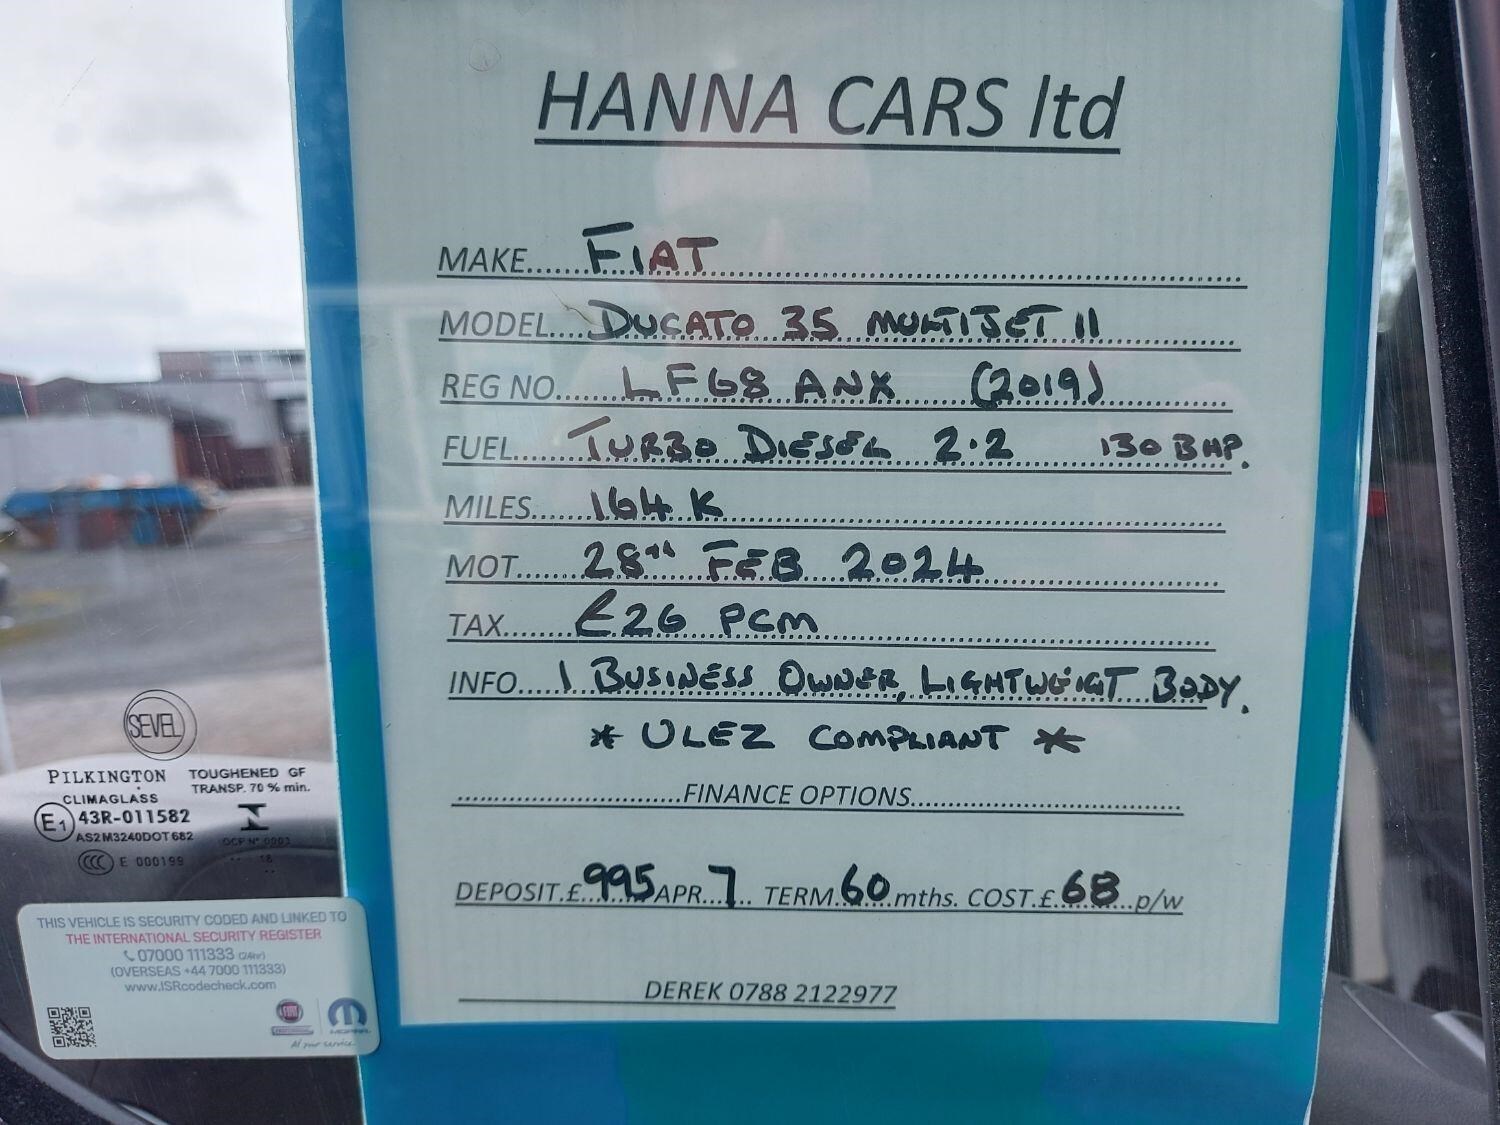 HANNA CARS ltd
MAKE......FIAT..............................
MODEL....DUCATO 35 MULTIJET II..............
REG NO.....LF68 ANX (2019)..............
FUEL......TURBO DIESEL 2.2 130 BHP.
MILES......164 K..............................
MOT.......28TH FEB 2024..............................
TAX.......£26 PCM..............................
INFO.....1 BUSINESS OWNER, LIGHTWEIGT BODY.
* ULEZ COMPLIANT *
..............................FINANCE OPTIONS..............................
DEPOSIT.£..995..APR...7.. TERM.60.mths. COST.£.68...p/w
DEREK 0788 2122977
SEVEL
PILKINGTON TOUGHENED GF
TRANSP. 70 % min.
CLIMAGLASS
E1 43R-011582
AS2M3240DOT682
OCP N° 0003
CCC E 000199
18
THIS VEHICLE IS SECURITY CODED AND LINKED TO
THE INTERNATIONAL SECURITY REGISTER
07000 111333 (24hr)
(OVERSEAS +44 7000 111333)
www.ISRcodecheck.com
FIAT
PROFESSIONAL MOPAR
At your service.